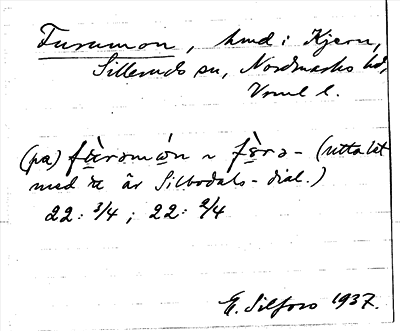 Furumon, hmd i Kjern,
Silleruds sn, Nordmarks hd,
Vrml l.
(på) fùrəmón ~ fò̱rə- (uttalet
med u är Silbodals-dial.)
22: 3/4; 22: 2/4
E. Silfors 1937.